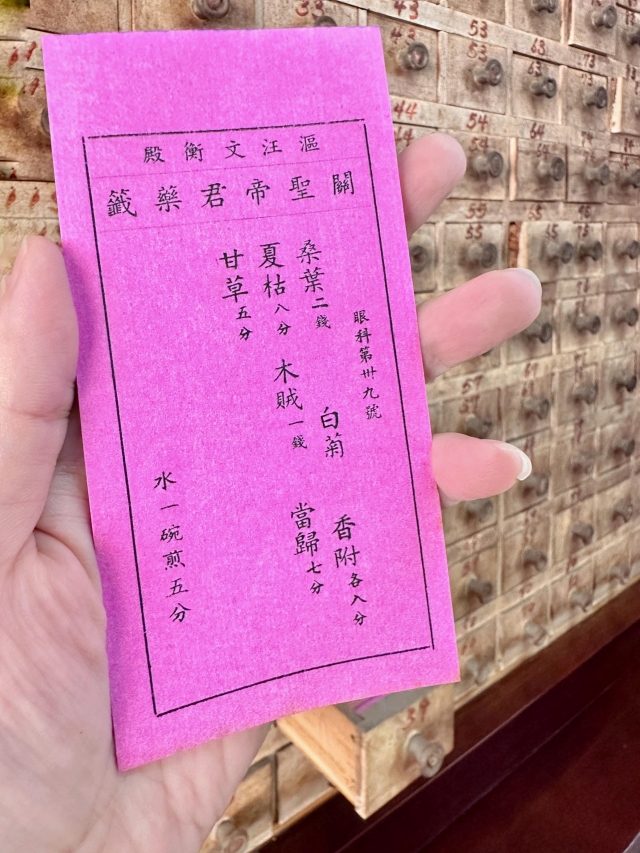 漚汪文衡殿
關聖帝君藥籤
眼科第卅九號
桑葉二錢 白菊 香附各八分
夏枯八分 木賊一錢 當歸七分
甘草五分
水一碗煎五分
43
53
53
63
44
54
64
55
39